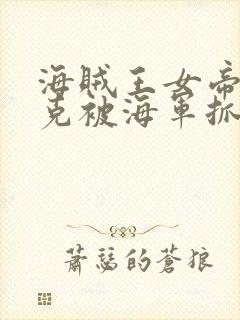 海賊王女帝
克被海軍抓
蕭瑟的蒼狼